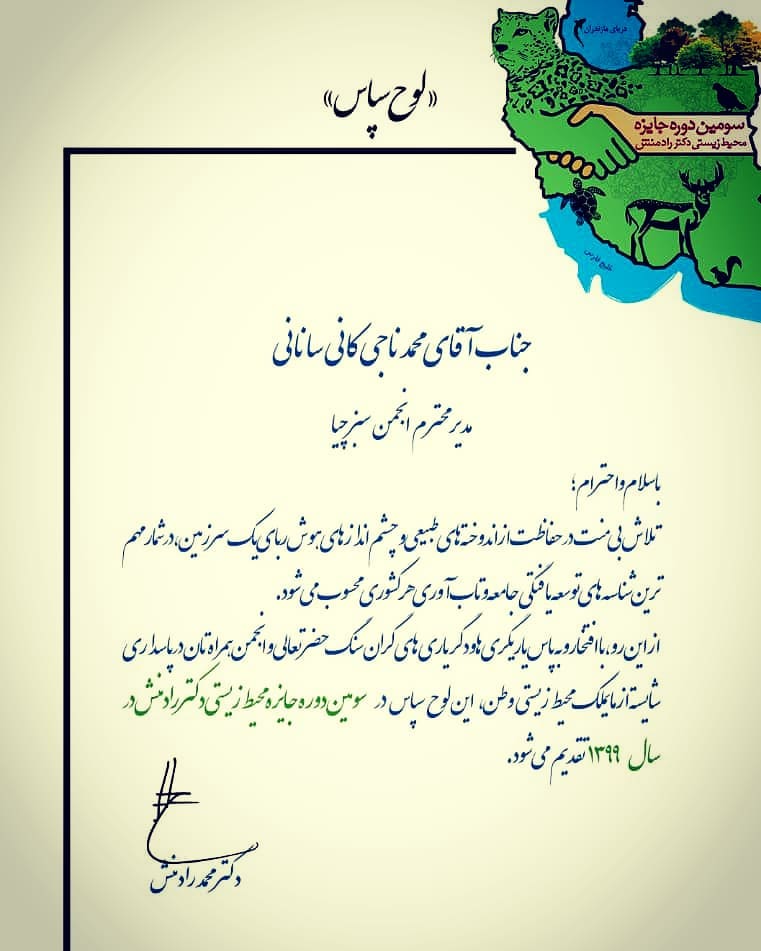 دریای مازندران
سومین دوره جایزه
محیط زیستی دکتر رادمنش
خلیج فارس
«لوح سپاس»
جناب آقای محمد ناجی کانی سانانی
مدیر محترم انجمن سبز چیا
باسلام و احترام؛
تلاش بی منت در حفاظت از اندوخته های طبیعی و چشم اندازهای هوش ربای یک سرزمین، در شمار مهم
ترین شناسه های توسعه یافتگی جامعه و تاب آوری هر کشوری محسوب می شود.
از این رو، با افتخار و به پاس یاریگری ها و دگریاری های گران سنگ حضرتعالی و انجمن همراه تان در پاسداری
شایسته از مایملک محیط زیستی وطن، این لوح سپاس در سومین دوره جایزه محیط زیستی دکتر رادمنش در
سال ۱۳۹۹ تقدیم می شود.
دکتر محمد رادمنش